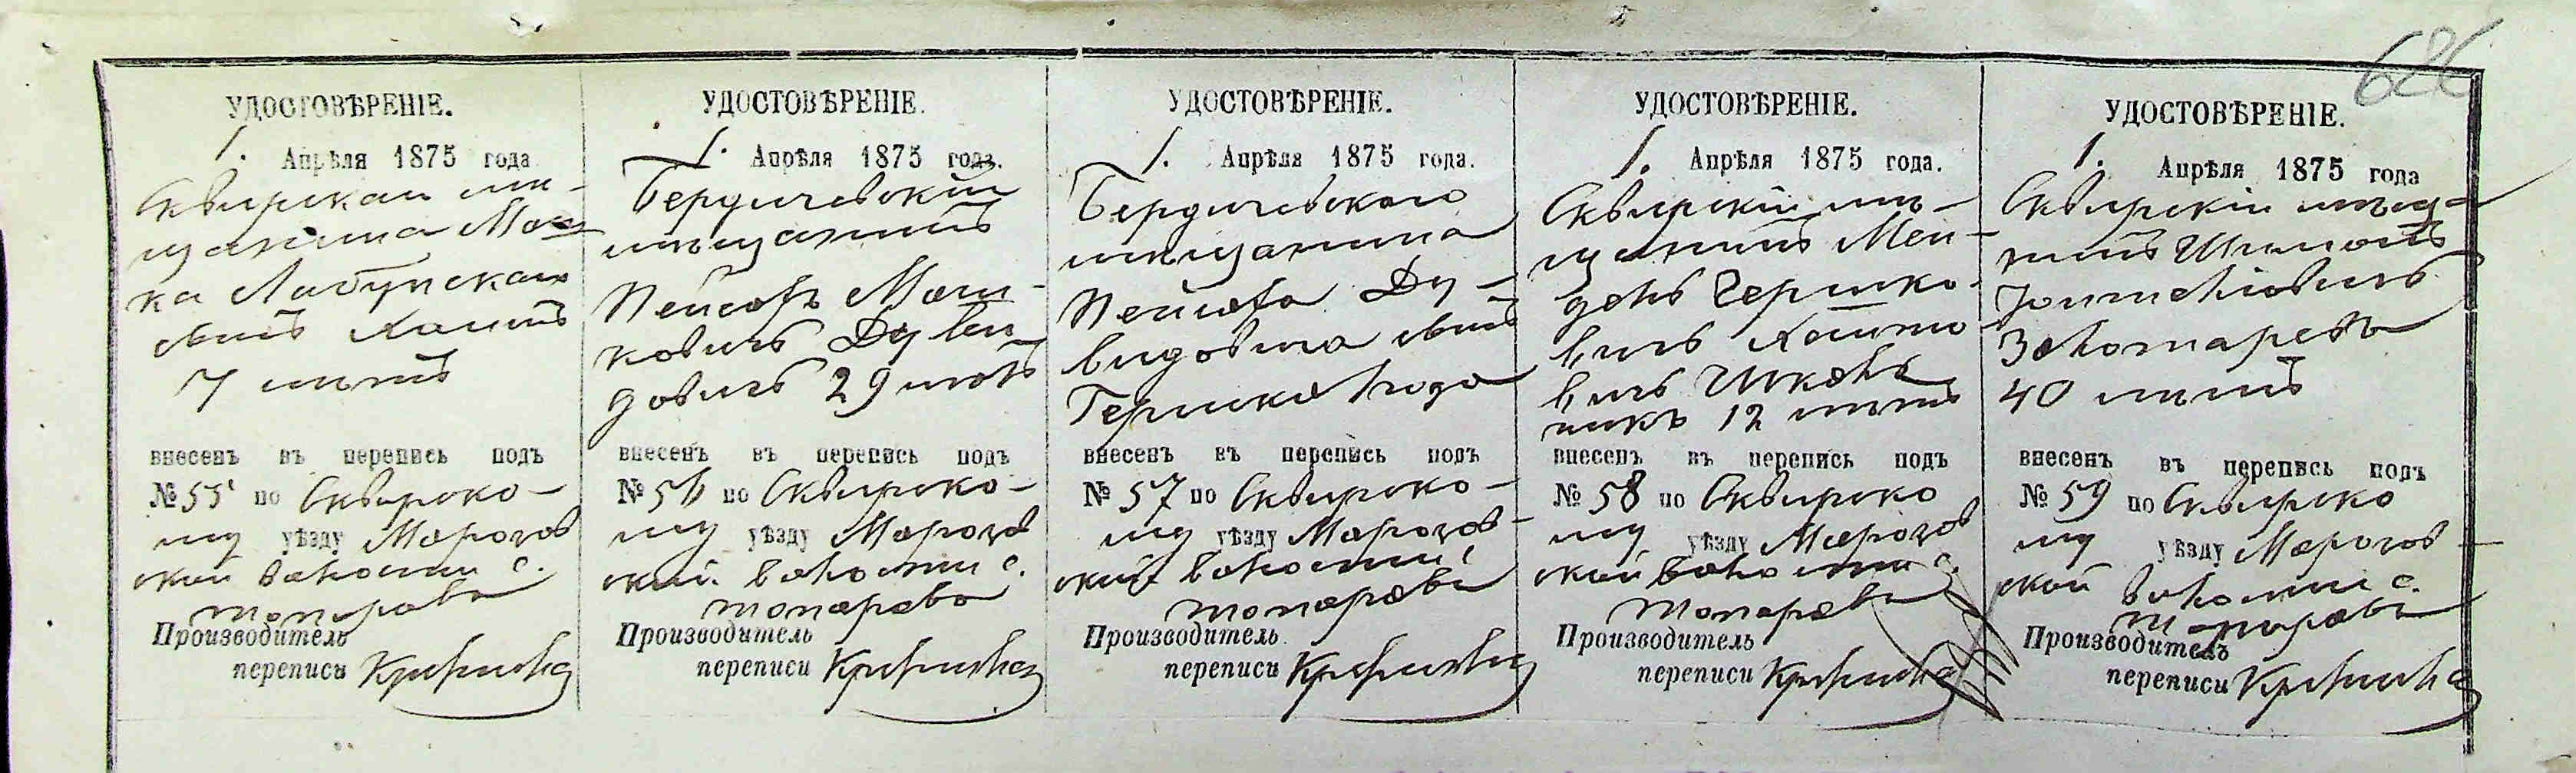 686
УДОСТОВѢРЕНІЕ.
1. Апрѣля 1875 года
Сквирская мѣ-
щанина Мош
ка
сынъ Хаимъ
7 лѣтъ
внесенъ въ перепись подъ
№ 55 по Сквирско-
му уѣзду Морозов
ской волости с.
Топорова
Производитель
переписи
УДОСТОВѢРЕНІЕ.
1. Апрѣля 1875 года.
Бердичевскій
мѣщанинъ
Пейсахъ Мош-
ковичъ Дуви
довичъ 29 лѣтъ
внесенъ въ перепись подъ
№ 56 по Сквирско-
му уѣзду Морозов
ской волости с.
Топорова
Производитель
переписи
УДОСТОВѢРЕНІЕ.
1. Апрѣля 1875 года.
Бердичевского
мѣщанина
Пейсаха Ду-
видовича сынъ
Гершко 1 года
внесенъ въ перепись подъ
№ 57 по Сквирско-
му уѣзду Морозов-
ской волости
Топорова
Производитель
переписи
УДОСТОВѢРЕНІЕ.
1. Апрѣля 1875 года.
Сквирскій мѣ-
щанинъ Мен-
дель Гершко-
вичъ Хаимо
вичъ Школь
никъ 12 лѣтъ
внесенъ въ перепись подъ
№ 58 по Сквирско
му уѣзду Морозов
ской волости с.
Топорова
Производитель
переписи
УДОСТОВѢРЕНІЕ.
1. Апрѣля 1875 года
Сквирскій мѣща-
нинъ Шимонъ
Золотаревъ
40 лѣтъ
внесенъ въ перепись подъ
№ 59 по Сквирско
му уѣзду Морозов
ской волости с.
Топорова
Производитель
переписи